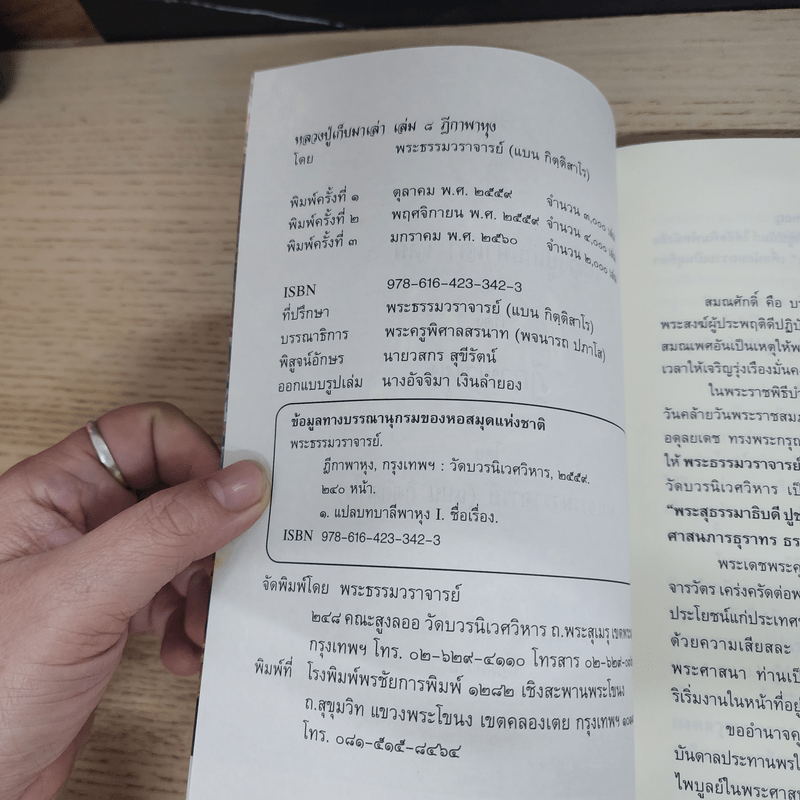 หลวงปู่เก็บมาเล่า เล่ม ๘ ฎีกาพาหุง
โดย พระธรรมวราจารย์ (แบน กิตฺติสาโร)
พิมพ์ครั้งที่ ๑ ตุลาคม พ.ศ. ๒๕๕๙ จำนวน ๓,๐๐๐
พิมพ์ครั้งที่ ๒ พฤศจิกายน พ.ศ. ๒๕๕๙ จำนวน ๔,๐๐๐
พิมพ์ครั้งที่ ๓ มกราคม พ.ศ. ๒๕๖๐ จำนวน ๒,๐๐๐
ISBN 978-616-423-342-3
ที่ปรึกษา พระธรรมวราจารย์ (แบน กิตฺติสาโร)
บรรณาธิการ พระครูพิศาลสรนาท (พจนารถ ปภาโส)
พิสูจน์อักษร นายวสกร สุขีรัตน์
ออกแบบรูปเล่ม นางอัจจิมา เงินลำยอง
ข้อมูลทางบรรณานุกรมของหอสมุดแห่งชาติ
พระธรรมวราจารย์.
ฎีกาพาหุง, กรุงเทพฯ : วัดบวรนิเวศวิหาร, ๒๕๕๙.
๒๔๐ หน้า.
๑. แปลบทบาลีพาหุง I. ชื่อเรื่อง.
ISBN 978-616-423-342-3
จัดพิมพ์โดย พระธรรมวราจารย์
๒๔๘ คณะสูงลออ วัดบวรนิเวศวิหาร ถ.พระสุเมรุ
กรุงเทพฯ โทร. ๐๒-๖๒๙-๔๑๑๐ โทรสาร
พิมพ์ที่ โรงพิมพ์พรชัยการพิมพ์ ๑๒๘๒ เชิงสะพานพระโขนง
ถ.สุขุมวิท แขวงพระโขนง เขตคลองเตย กรุงเทพฯ
โทร. ๐๘๑-๕๑๕-๘๔๖๔
สมณศักดิ์ คือ
พระสงฆ์ผู้ประพฤติดีปฏิบั
สมณเพศอันเป็นเหตุให้พ
เวลาให้เจริญรุ่งเรืองมั่นค
ในพระราชพิธีบำ
วันคล้ายวันพระราชสม
อดุลยเดช ทรงพระกรุณ
ให้ พระธรรมวราจารย์
วัดบวรนิเวศวิหาร เป็
"พระสุธรรมาธิบดี ปูช
ศาสนภารธุราทร ธร
พระเดชพระคุ
จารวัตร เคร่งครัดต่อพ
ประโยชน์แก่ประเทศช
ด้วยความเสียสละ
พระศาสนา ท่านเป็
ริเริ่มงานในหน้าที่อยู่
ขออำนาจคุ
บันดาลประทานพรใ
ไพบูลย์ในพระศาส